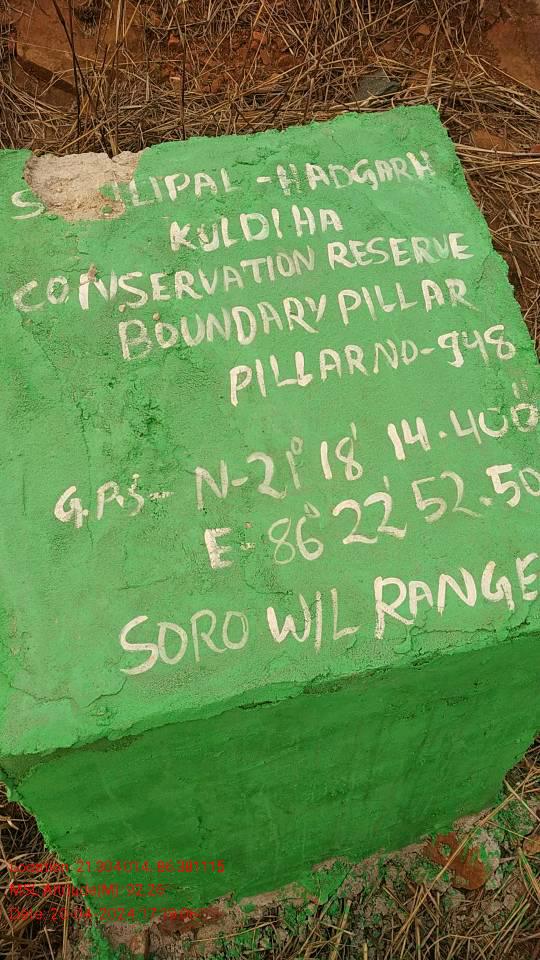 LIPAL - HADGARH
KULDIHA
CONSERVATION RESERVE
BOUNDARY PILLAR
PILLAR NO - 948
G.P.S - N - 21° 18' 14.400"
E - 86° 22' 52.50
SORO W/L RANGE
Location: 21.304014, 86.381115
MSL Altitude(M): 92.26
Date: 20-04-2024 17: